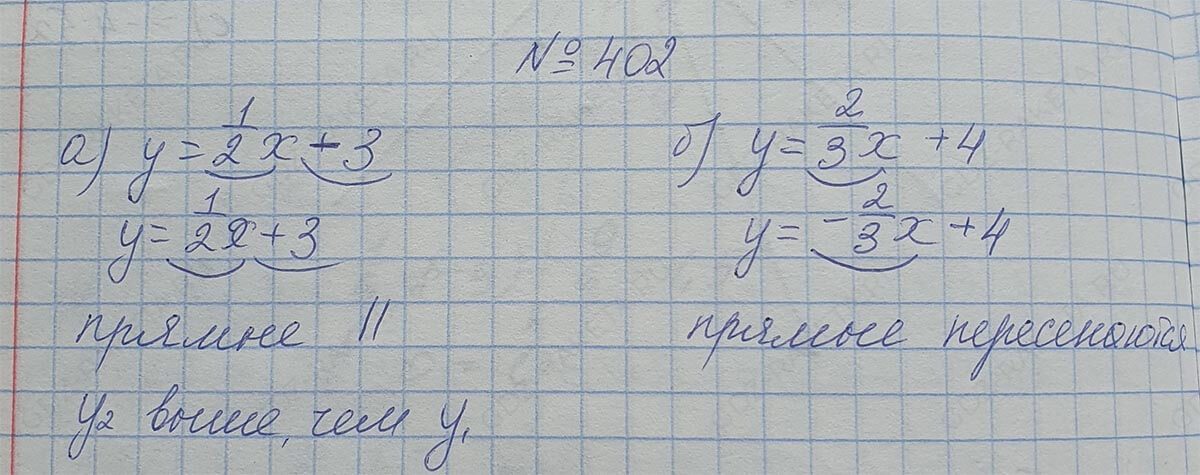 № 402
а) y = 1/2 x - 3
y = 1/2 x + 3
прямые ||
y₂ выше, чем y₁
б) y = 2/3 x + 4
y = - 2/3 x + 4
прямые пересекаются